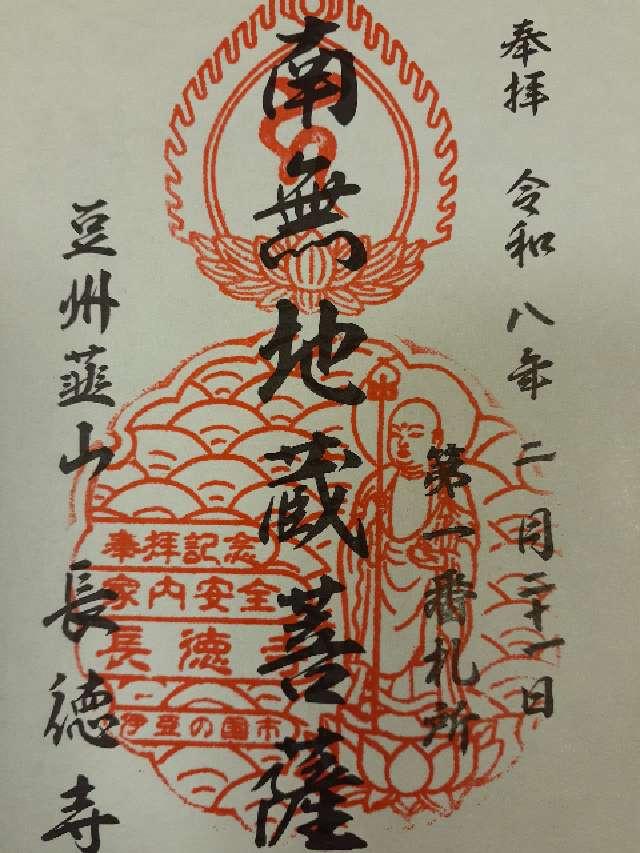 奉拝 令和八年二月二十一日
第一番札所
南無地蔵菩薩
豆州韮山 長徳寺
奉拝記念
家内安全
長徳寺
伊豆の国市